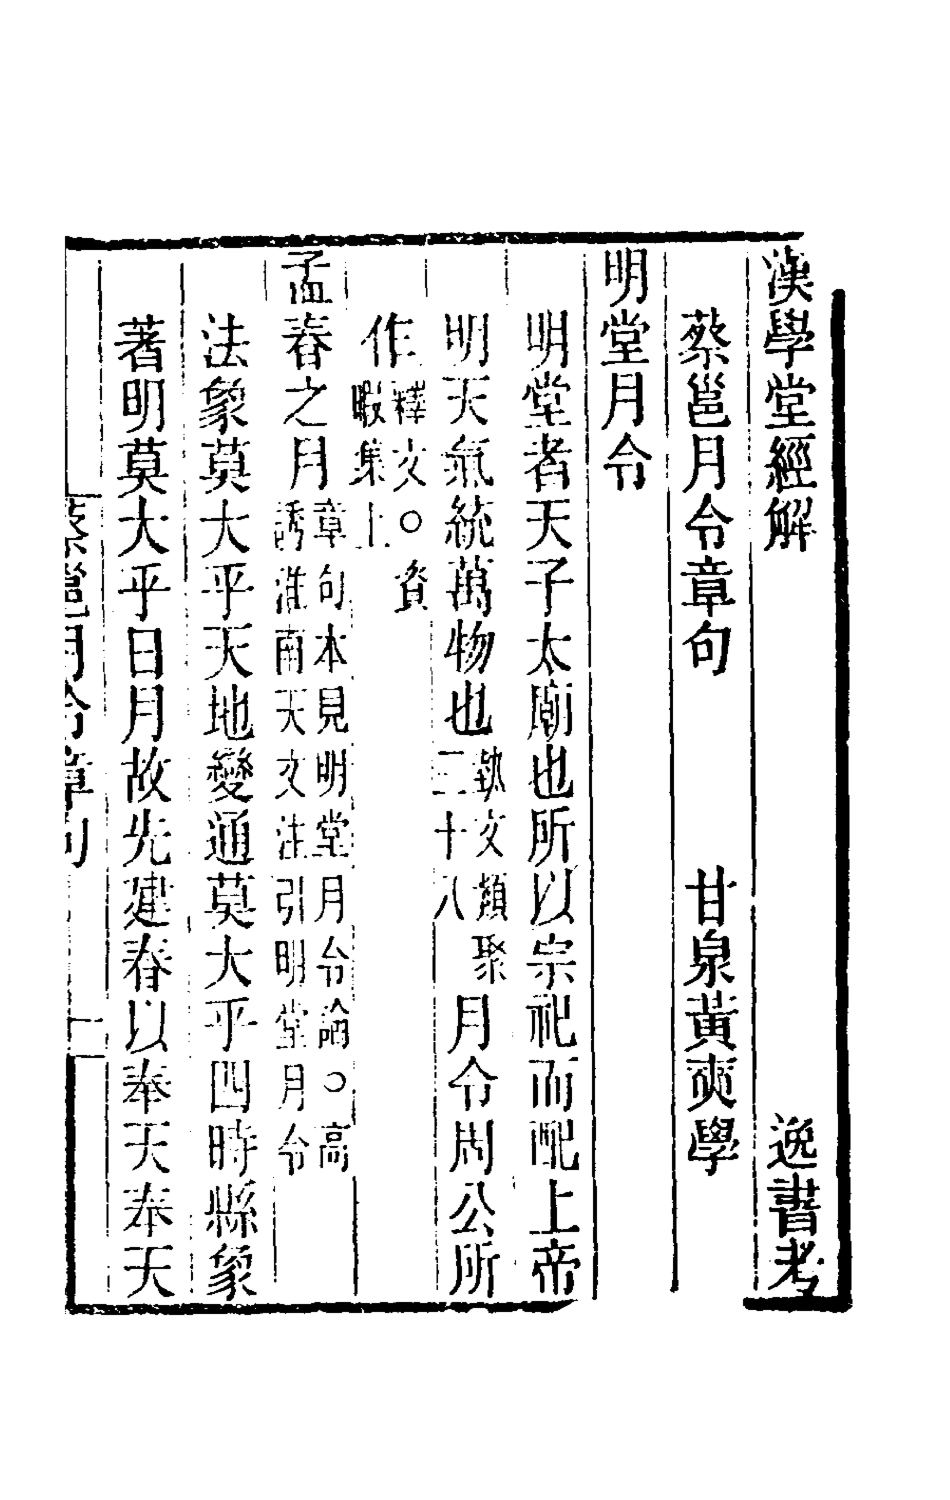 漢學堂經解　逸書考
蔡邕月令章句　甘泉黃奭學
明堂月令
明堂者天子太廟也所以宗祀而配上帝
明天氣統萬物也 埶文類聚 三十八 月令周公所
作 釋文○資 暇集上
孟春之月 章句本見明堂月令論○高 誘淮南天文注引明堂月令
法象莫大乎天地變通莫大乎四時縣象
著明莫大乎日月故先建春以奉天奉天
蔡邕月令章句　一